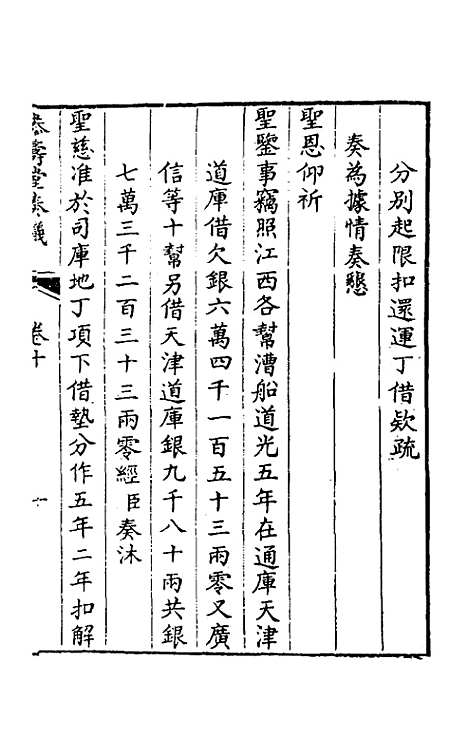 分别起限扣還運丁借欵疏
奏為據情奏懇
聖恩仰祈
聖鑒事竊照江西各幫漕船道光五年在通庫天津
道庫借欠銀六萬四千一百五十三兩零又廣
信等十幫另借天津道庫銀九千八十兩共銀
七萬三千二百三十三兩零經臣奏沐
聖慈准於司庫地丁項下借墊分作五年二年扣解
壽堂奏議 卷十